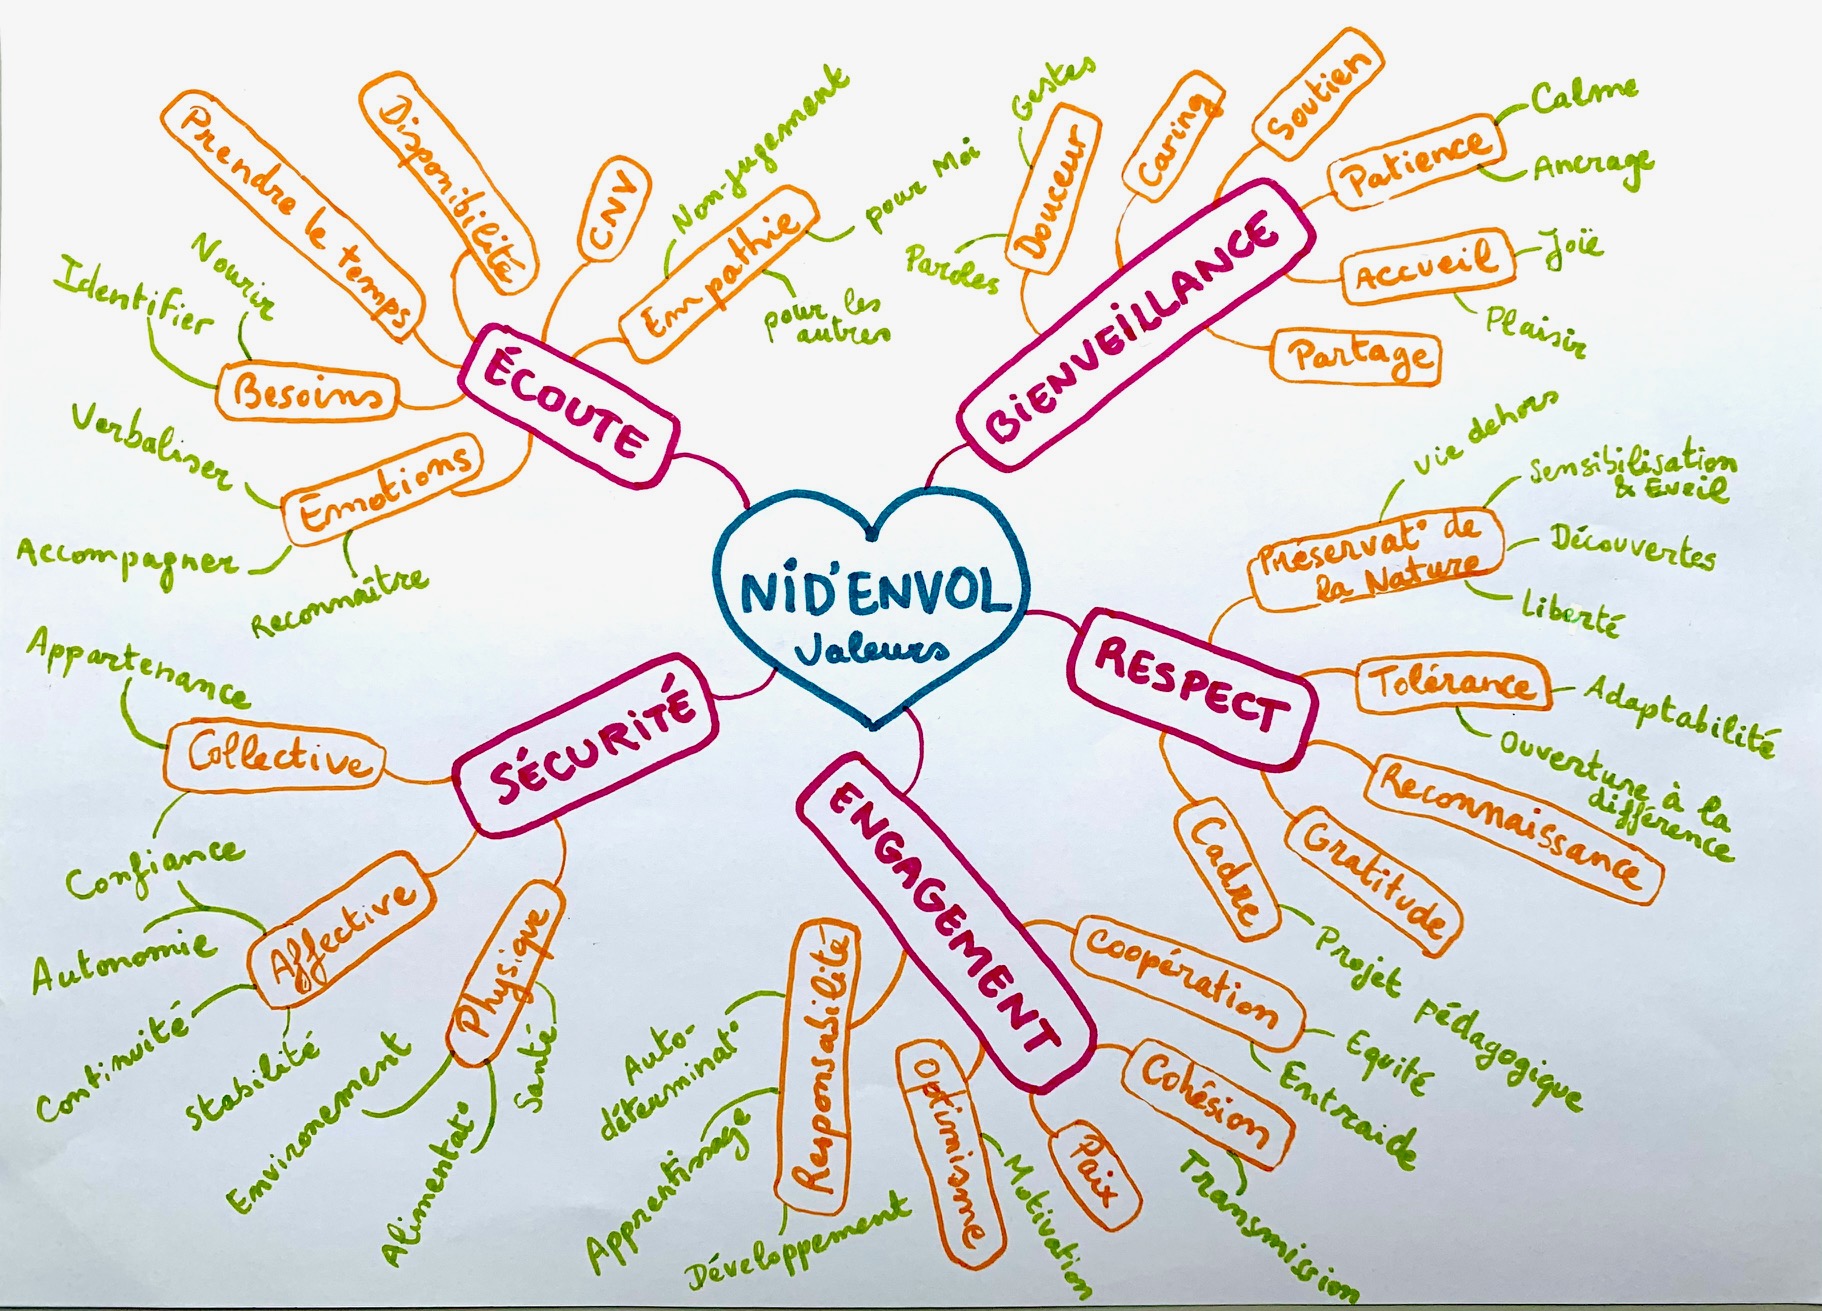 NID'ENVOL
Valeurs
ÉCOUTE
Prendre le temps
Disponibilité
CNV
Empathie
Non-jugement
pour Moi
pour les
autres
Besoins
Nourir
Identifier
Émotions
Verbaliser
Accompagner
Reconnaître
BiENVEiLLANCE
Douceur
Gestes
Paroles
Caring
Soutien
Patience
Calme
Ancrage
Accueil
Joie
Plaisir
Partage
RESPECT
Préservat° de
la Nature
Vie dehors
Sensibilisation
& Eveil
Découvertes
Liberté
Tolérance
Adaptabilité
Ouverture à la
différence
Reconnaissance
Gratitude
Cadre
Projet pédagogique
ENGAGEMENT
Coopération
Equité
Entraide
Cohésion
Transmission
Paix
Optimisme
Motivation
Responsabilité
Auto-
déterminat°
Apprentissage
Développement
SÉCURiTÉ
Collective
Appartenance
Confiance
Affective
Autonomie
Continuité
Stabilité
Physique
Environement
Alimentat°
Santé